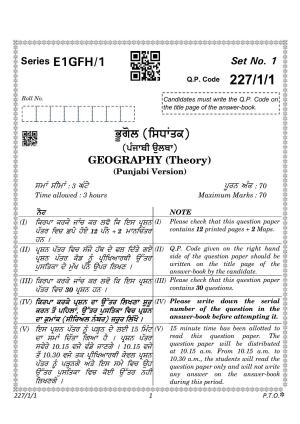 Series E1GFH/1
Set No. 1
Q.P. Code 227/1/1
Roll No.
Candidates must write the Q.P. Code on
the title page of the answer-book.
ਭੂਗੋਲ (ਸਿਧਾਂਤਕ)
(ਪੰਜਾਬੀ ਉਲਥਾ)
GEOGRAPHY (Theory)
(Punjabi Version)
ਸਮਾਂ ਸੀਮਾ : 3 ਘੰਟੇ
ਪੂਰਨ ਅੰਕ : 70
Time allowed : 3 hours
Maximum Marks : 70
ਨੋਟ
(I) ਕਿਰਪਾ ਕਰਕੇ ਜਾਂਚ ਕਰ ਲਵੋ ਕਿ ਇਸ ਪ੍ਰਸ਼ਨ
ਪੱਤਰ ਵਿਚ ਛਪੇ ਹੋਏ 12 ਪੰਨੇ + 2 ਮਾਨਚਿੱਤਰ
ਹਨ ।
(II) ਪ੍ਰਸ਼ਨ ਪੱਤਰ ਵਿਚ ਸੱਜੇ ਹੱਥ ਦੇ ਵਲ ਦਿੱਤੇ ਗਏ
ਪ੍ਰਸ਼ਨ ਪੱਤਰ ਕੋਡ ਨੂੰ ਪ੍ਰੀਖਿਆਰਥੀ ਉੱਤਰ
ਪੁਸਤਿਕਾ ਦੇ ਮੁੱਖ ਪੰਨੇ ਉਪਰ ਲਿਖਣ ।
(III) ਕਿਰਪਾ ਕਰਕੇ ਜਾਂਚ ਕਰ ਲਵੋ ਕਿ ਇਸ ਪ੍ਰਸ਼ਨ
ਪੱਤਰ ਵਿਚ 30 ਪ੍ਰਸ਼ਨ ਹਨ ।
(IV) ਕਿਰਪਾ ਕਰਕੇ ਪ੍ਰਸ਼ਨ ਦਾ ਉੱਤਰ ਲਿਖਣਾ ਸ਼ੁਰੂ
ਕਰਨ ਤੋਂ ਪਹਿਲਾਂ, ਉੱਤਰ ਪੁਸਤਿਕਾ ਵਿਚ ਪ੍ਰਸ਼ਨ
ਦਾ ਕ੍ਰਮਾਂਕ (ਸੀਰੀਅਲ ਨੰਬਰ) ਜ਼ਰੂਰ ਲਿਖੋ ।
(V) ਇਸ ਪ੍ਰਸ਼ਨ ਪੱਤਰ ਨੂੰ ਪੜ੍ਹਨ ਦੇ ਲਈ 15 ਮਿੰਟ
ਦਾ ਸਮਾਂ ਦਿੱਤਾ ਗਿਆ ਹੈ । ਪ੍ਰਸ਼ਨ ਪੱਤਰ
ਸਵੇਰੇ 10.15 ਵਜੇ ਵੰਡੇ ਜਾਣਗੇ । 10.15 ਤੋਂ
10.30 ਵਜੇ ਤਕ ਪ੍ਰੀਖਿਆਰਥੀ ਕੇਵਲ ਪ੍ਰਸ਼ਨ
ਪੱਤਰ ਨੂੰ ਪੜ੍ਹਨਗੇ ਅਤੇ ਇਸ ਸਮੇਂ ਦੌਰਾਨ ਉਹ
ਉੱਤਰ ਪੁਸਤਿਕਾ ਵਿਚ ਕੋਈ ਉੱਤਰ ਨਹੀਂ
ਲਿਖਣਗੇ ।
NOTE
(I) Please check that this question paper
contains 12 printed pages + 2 Maps.
(II) Q.P. Code given on the right hand
side of the question paper should be
written on the title page of the
answer-book by the candidate.
(III) Please check that this question paper
contains 30 questions.
(IV) Please write down the serial
number of the question in the
answer-book before attempting it.
(V) 15 minute time has been allotted to
read this question paper. The
question paper will be distributed
at 10.15 a.m. From 10.15 a.m. to
10.30 a.m., the students will read the
question paper only and will not write
any answer on the answer-book
during this period.
227/1/1
1
P.T.O.